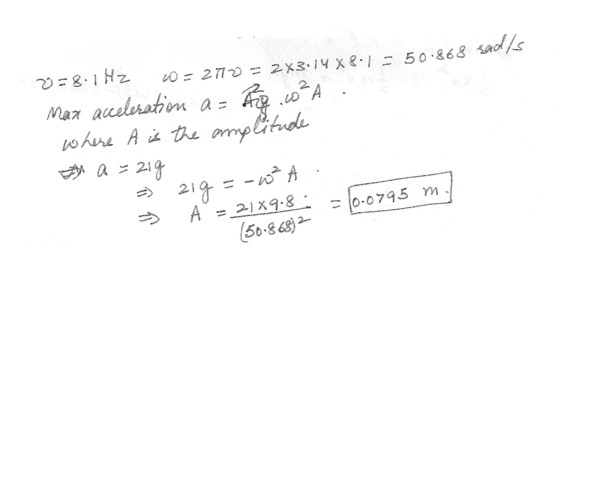 ν = 8.1 Hz ω = 2πν = 2×3.14×8.1 = 50.868 rad/s
Max acceleration a = ω²A .
where A is the amplitude
a = 21g
⇒ 21g = -ω² A .
⇒ A = 21×9.8 / (50.868)² = 0.0795 m.